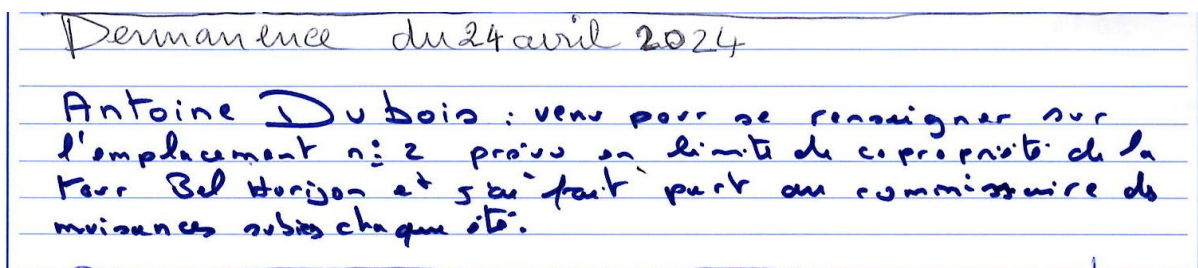 Permanence du 24 avril 2024
Antoine Dubois : venu pour se renseigner sur
l'emplacement n° 2 prévu en limite de copropriété de la
tour Bel Horizon et j'ai fait part au commissaire des
nuisances subies chaque été.